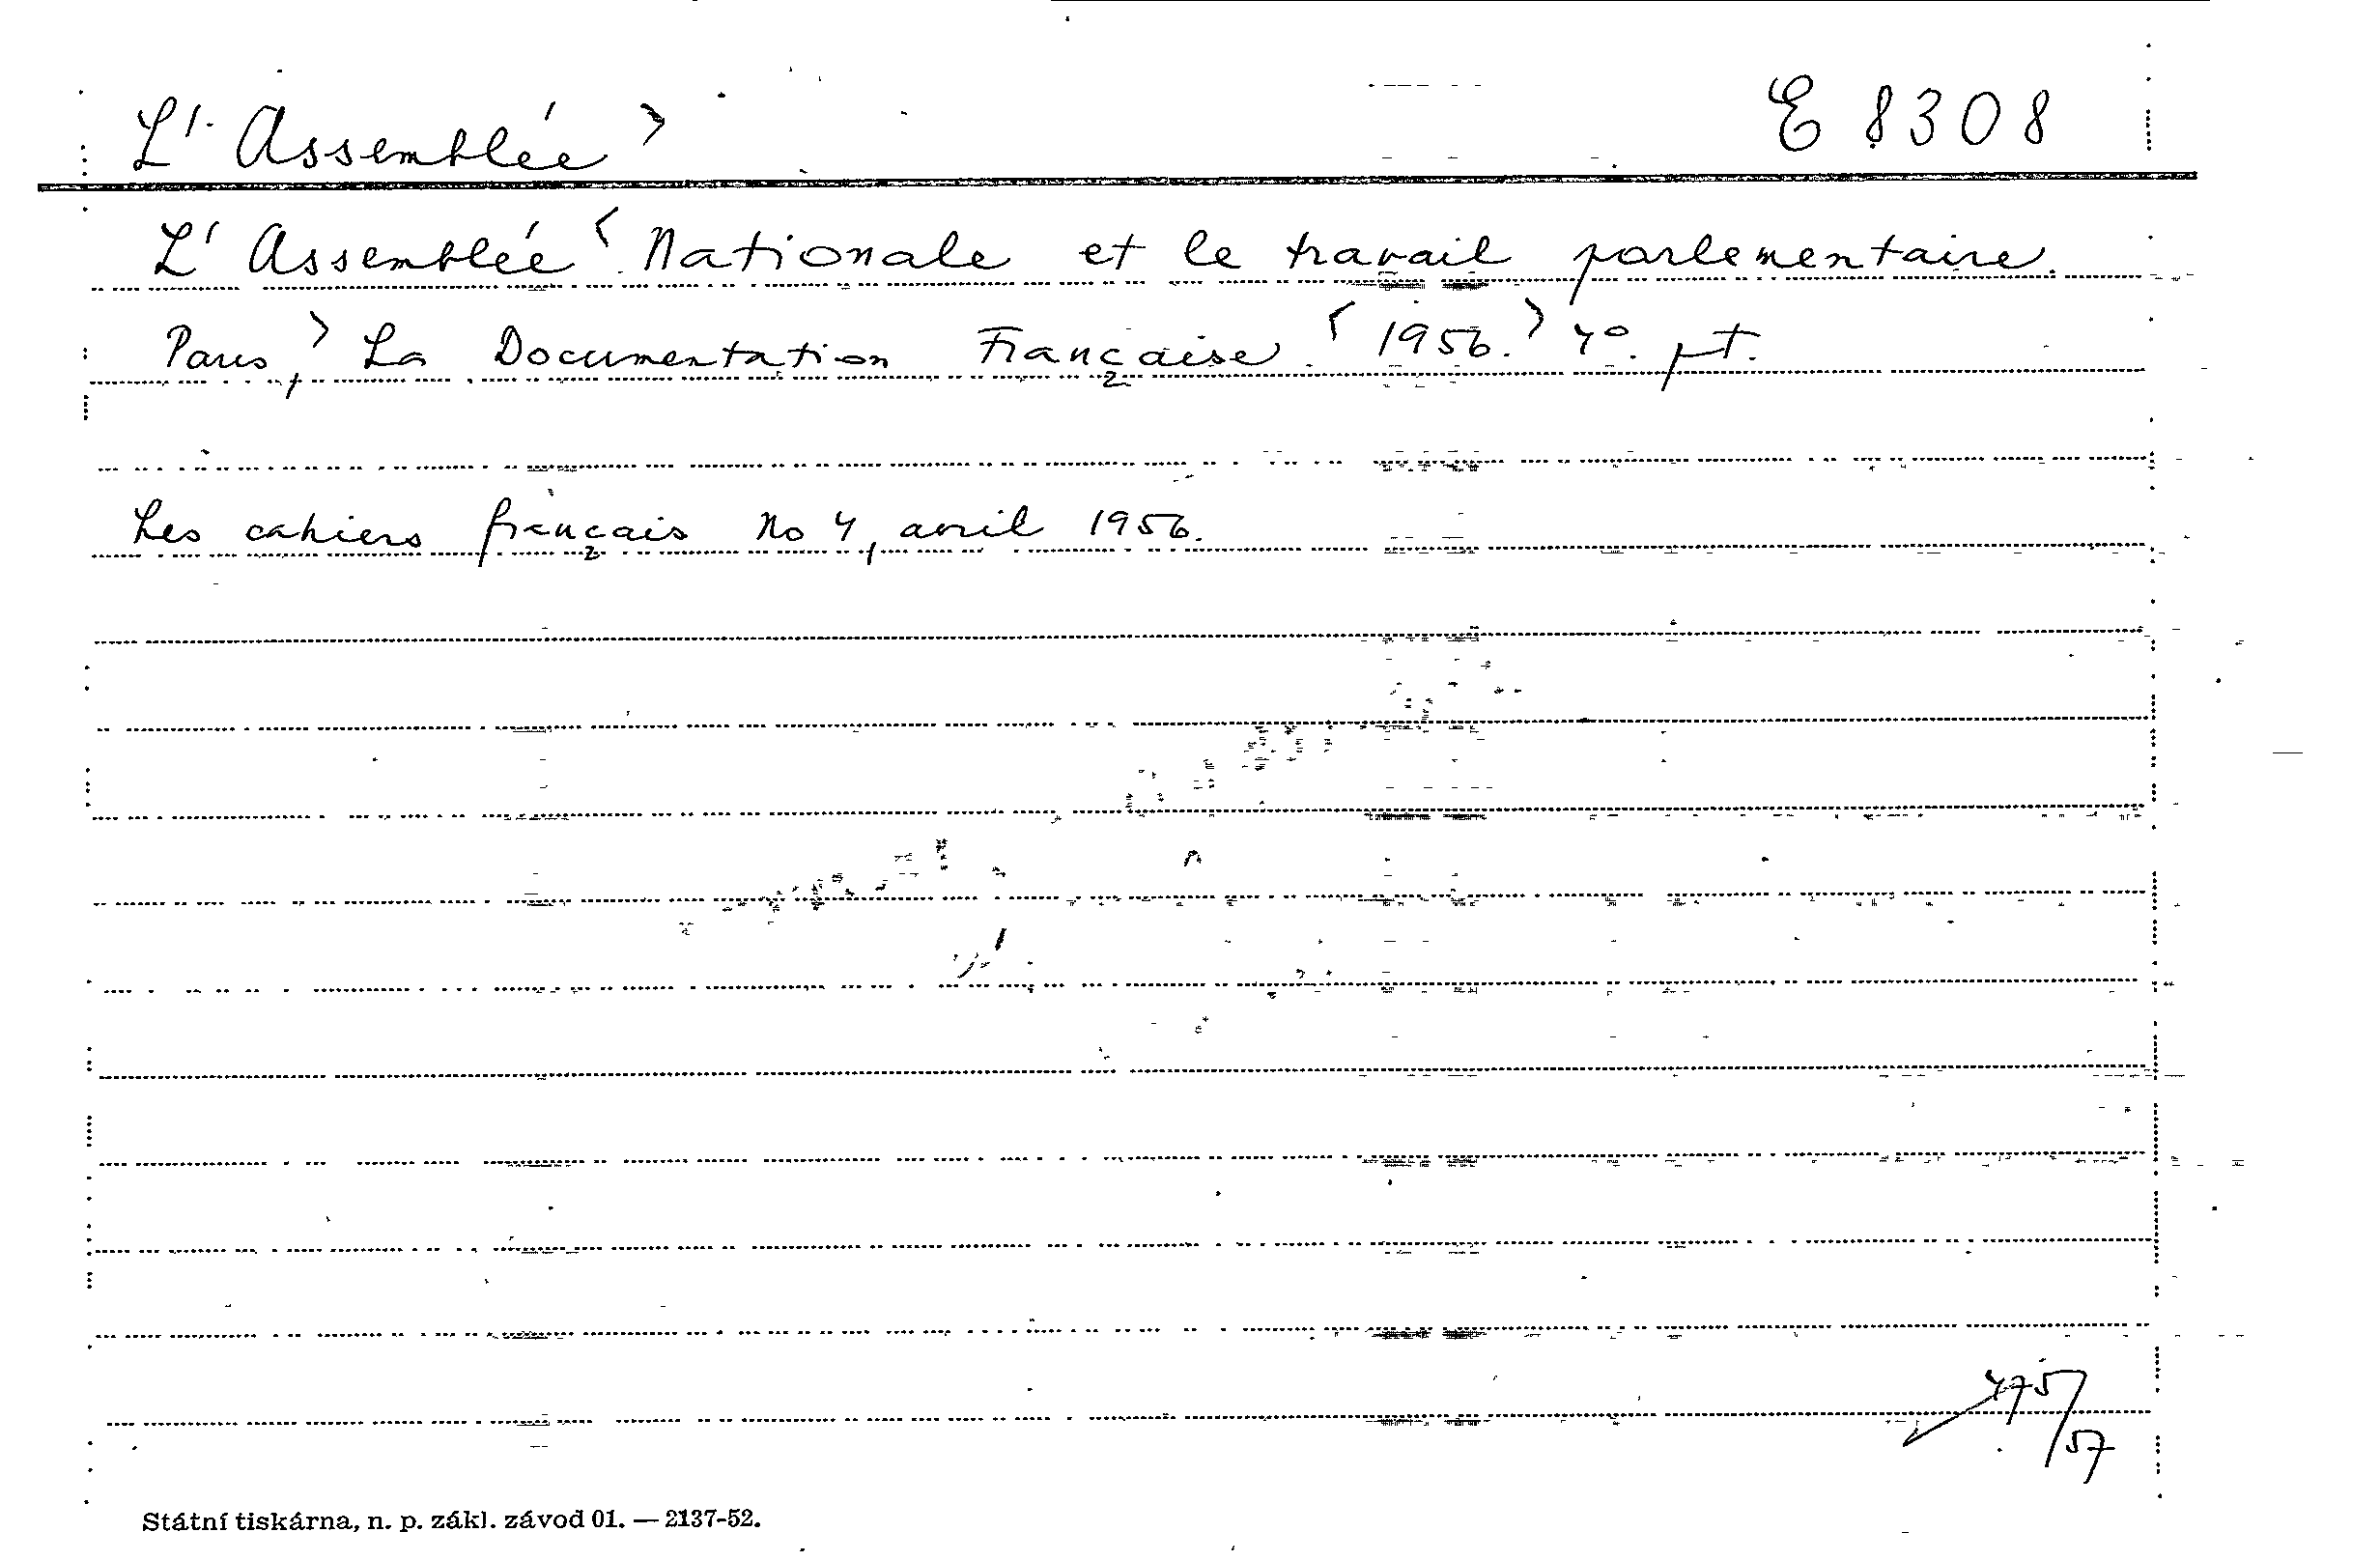 L' Assemblée > E 8308
L' Assemblée < Nationale et le travail parlementaire.
Paris, > La Documentation Française. < 1956. > 4°. pt.
Les cahiers français No 4, avril 1956.
475/57
Státní tiskárna, n. p. zákl. závod 01. — 2137-52.